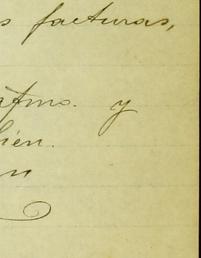 s facturas,
atmo. y
bien.
n